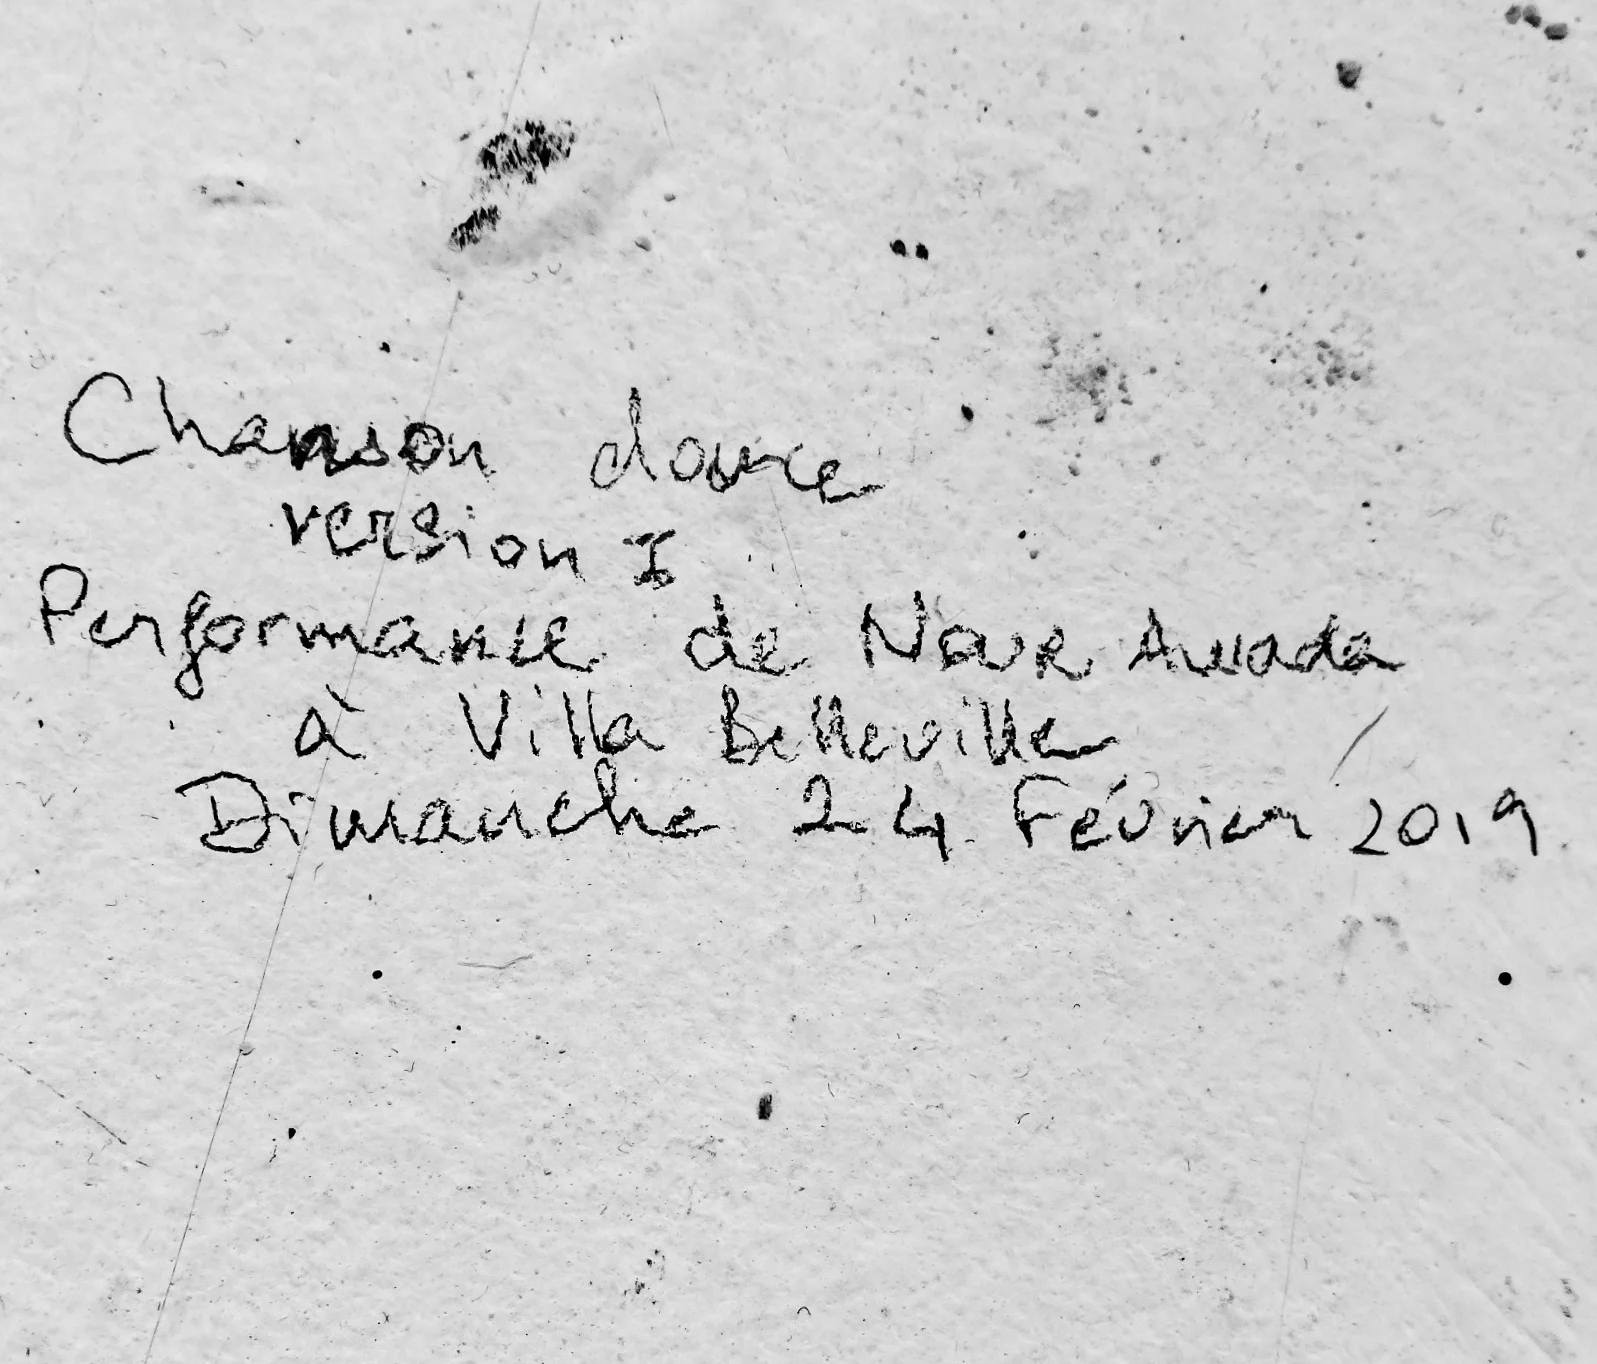 Chanson douce
version I
Performance de
à Villa Belleville
Dimanche 24 Février 2019